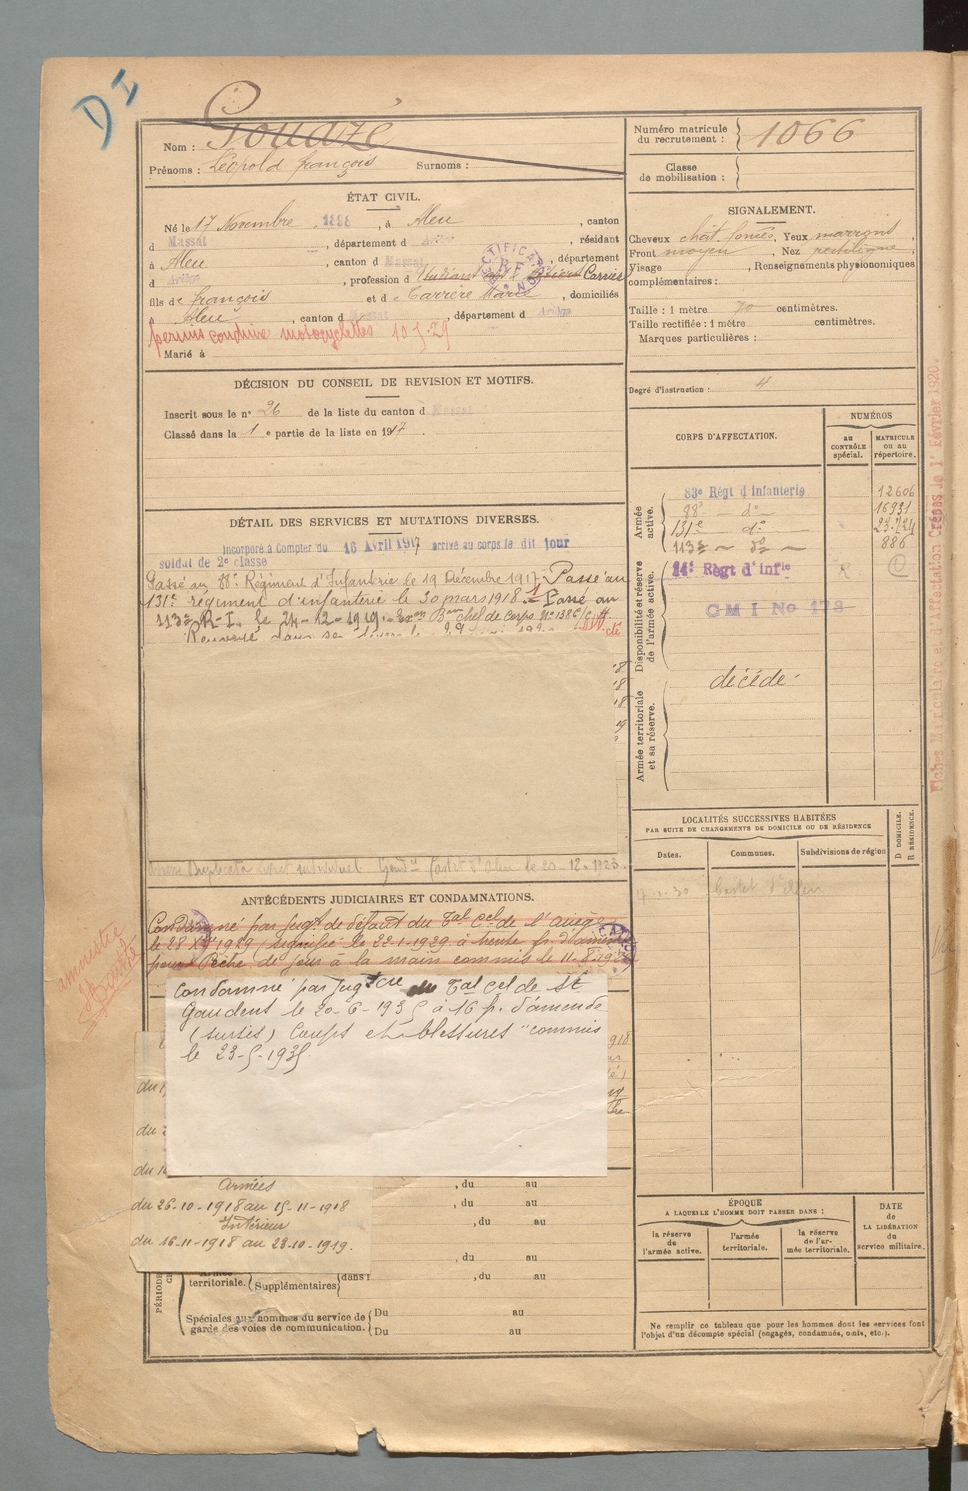 D I
Nom : Goudzé
Prénoms : Léopold françois Surnoms :
Numéro matricule
du recrutement : 1066
Classe
de mobilisation :
ÉTAT CIVIL.
Né le 17 Novembre 1898, à Aleu, canton
d Massat, département d Ariège, résidant
à Aleu, canton d Massat, département
d Ariège, profession d Carrier
fils de françois et de Carrière Marie, domiciliés
à Aleu, canton d Massat, département d Ariège
permis conduire motocyclettes 10-5-29
Marié à
SIGNALEMENT.
Cheveux chât. foncés, Yeux marrons,
Front moyen, Nez rectiligne,
Visage , Renseignements physionomiques
complémentaires :
Taille : 1 mètre 70 centimètres.
Taille rectifiée : 1 mètre centimètres.
Marques particulières :
Degré d'instruction : 4
DÉCISION DU CONSEIL DE REVISION ET MOTIFS.
Inscrit sous le n° 26 de la liste du canton d Massat
Classé dans la 1 e partie de la liste en 1917.
CORPS D'AFFECTATION.
NUMÉROS
au
CONTRÔLE
spécial.
MATRICULE
ou au
répertoire.
Armée
active.
83e Régt d'infanterie 12606
88e - do - 16931
131e do 23.724
113e - do - 886
Disponibilité et réserve
de l'armée active.
14e Régt d'infie R
CMI No 178
Armée territoriale
et sa réserve.
décédé
Fiches Matriculaire et d'Affectation Créées le 1er Février 1920.
DÉTAIL DES SERVICES ET MUTATIONS DIVERSES.
Incorporé à Compter du 16 Avril 1917 arrivé au corps le dit jour
soldat de 2e classe
Passé au 88e Régiment d'Infanterie le 19 Décembre 1917. Passé au
131e régiment d'infanterie le 30 mars 1918. Passé au
113e R.I. le 24-12-1919. chef de corps No 1386
Duplicata livret individuel Gendie Castet d'Aleu le 20-12-1923.
LOCALITÉS SUCCESSIVES HABITÉES
PAR SUITE DE CHANGEMENTS DE DOMICILE OU DE RÉSIDENCE
Dates.
Communes.
Subdivisions de région
D DOMICILE.
R RÉSIDENCE.
Castet d'Aleu
ANTÉCÉDENTS JUDICIAIRES ET CONDAMNATIONS.
Condamné par Jugt de défaut du Tal cel de St
le 28 signifié le 22-1-1929 à trente fr. d'amende
pour Pêche de jour à la main commis le 11-8-192
amnistie
Condamné par Jugt cre du Tal cel de St
Gaudens le 20-6-1935 à 16 fr. d'amende
(sursis) Coups et blessures "commis
le 23-5-1935
Armées
du 26-10-1918 au 15-11-1918
Intérieur
du 16-11-1918 au 23-10-1919.
, du au
, du au
, du au
, du au
territoriale. Supplémentaires dans l , du au
Spéciales aux hommes du service de
garde des voies de communication. Du au
Du au
ÉPOQUE
A LAQUELLE L'HOMME DOIT PASSER DANS :
la réserve
de
l'armée active.
l'armée
territoriale.
la réserve
de l'ar-
mée territoriale.
DATE
de
LA LIBÉRATION
du
service militaire.
Ne remplir ce tableau que pour les hommes dont les services font
l'objet d'un décompte spécial (engagés, condamnés, omis, etc.).